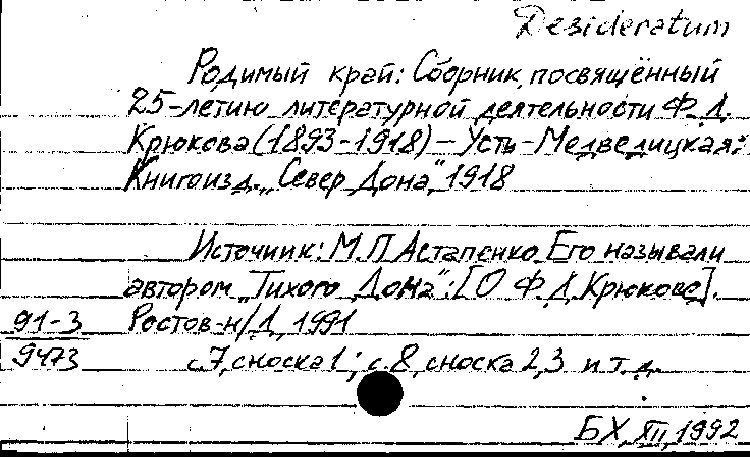 Desideratum
Родимый край: Сборник, посвящённый
25-летию литературной деятельности Ф.Д.
Крюкова (1893-1918) – Усть-Медведицкая:
Книгоизд. „Север Дона", 1918
Источник: М.П. Астапенко. Его называли
автором „Тихого Дона": [О Ф.Д. Крюкове].
91-3 Ростов-н/Д, 1991
9473 с.7, сноска 1; с.8, сноска 2,3 и т.д.
БХ, XII, 1992